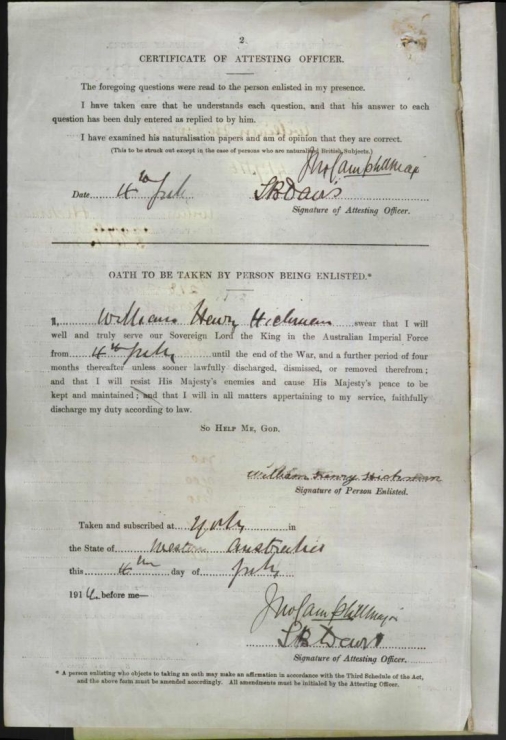 2
CERTIFICATE OF ATTESTING OFFICER.
The foregoing questions were read to the person enlisted in my presence.
I have taken care that he understands each question, and that his answer to each
question has been duly entered as replied to by him.
I have examined his naturalisation papers and am of opinion that they are correct.
(This to be struck out except in the case of persons who are naturalised British Subjects.)
Jno Campbell Major
Date 4th July
Signature of Attesting Officer.
OATH TO BE TAKEN BY PERSON BEING ENLISTED.*
I, William Henry Hickman swear that I will
well and truly serve our Sovereign Lord the King in the Australian Imperial Force
from 4th July until the end of the War, and a further period of four
months thereafter unless sooner lawfully discharged, dismissed, or removed therefrom;
and that I will resist His Majesty's enemies and cause His Majesty's peace to be
kept and maintained; and that I will in all matters appertaining to my service, faithfully
discharge my duty according to law.
SO HELP ME, GOD.
William Henry Hickman
Signature of Person Enlisted.
Taken and subscribed at York in
the State of Western Australia
this 4th day of July
191 before me—
Jno Campbell Major
Signature of Attesting Officer.
* A person enlisting who objects to taking an oath may make an affirmation in accordance with the Third Schedule of the Act,
and the above form must be amended accordingly. All amendments must be initialed by the Attesting Officer.